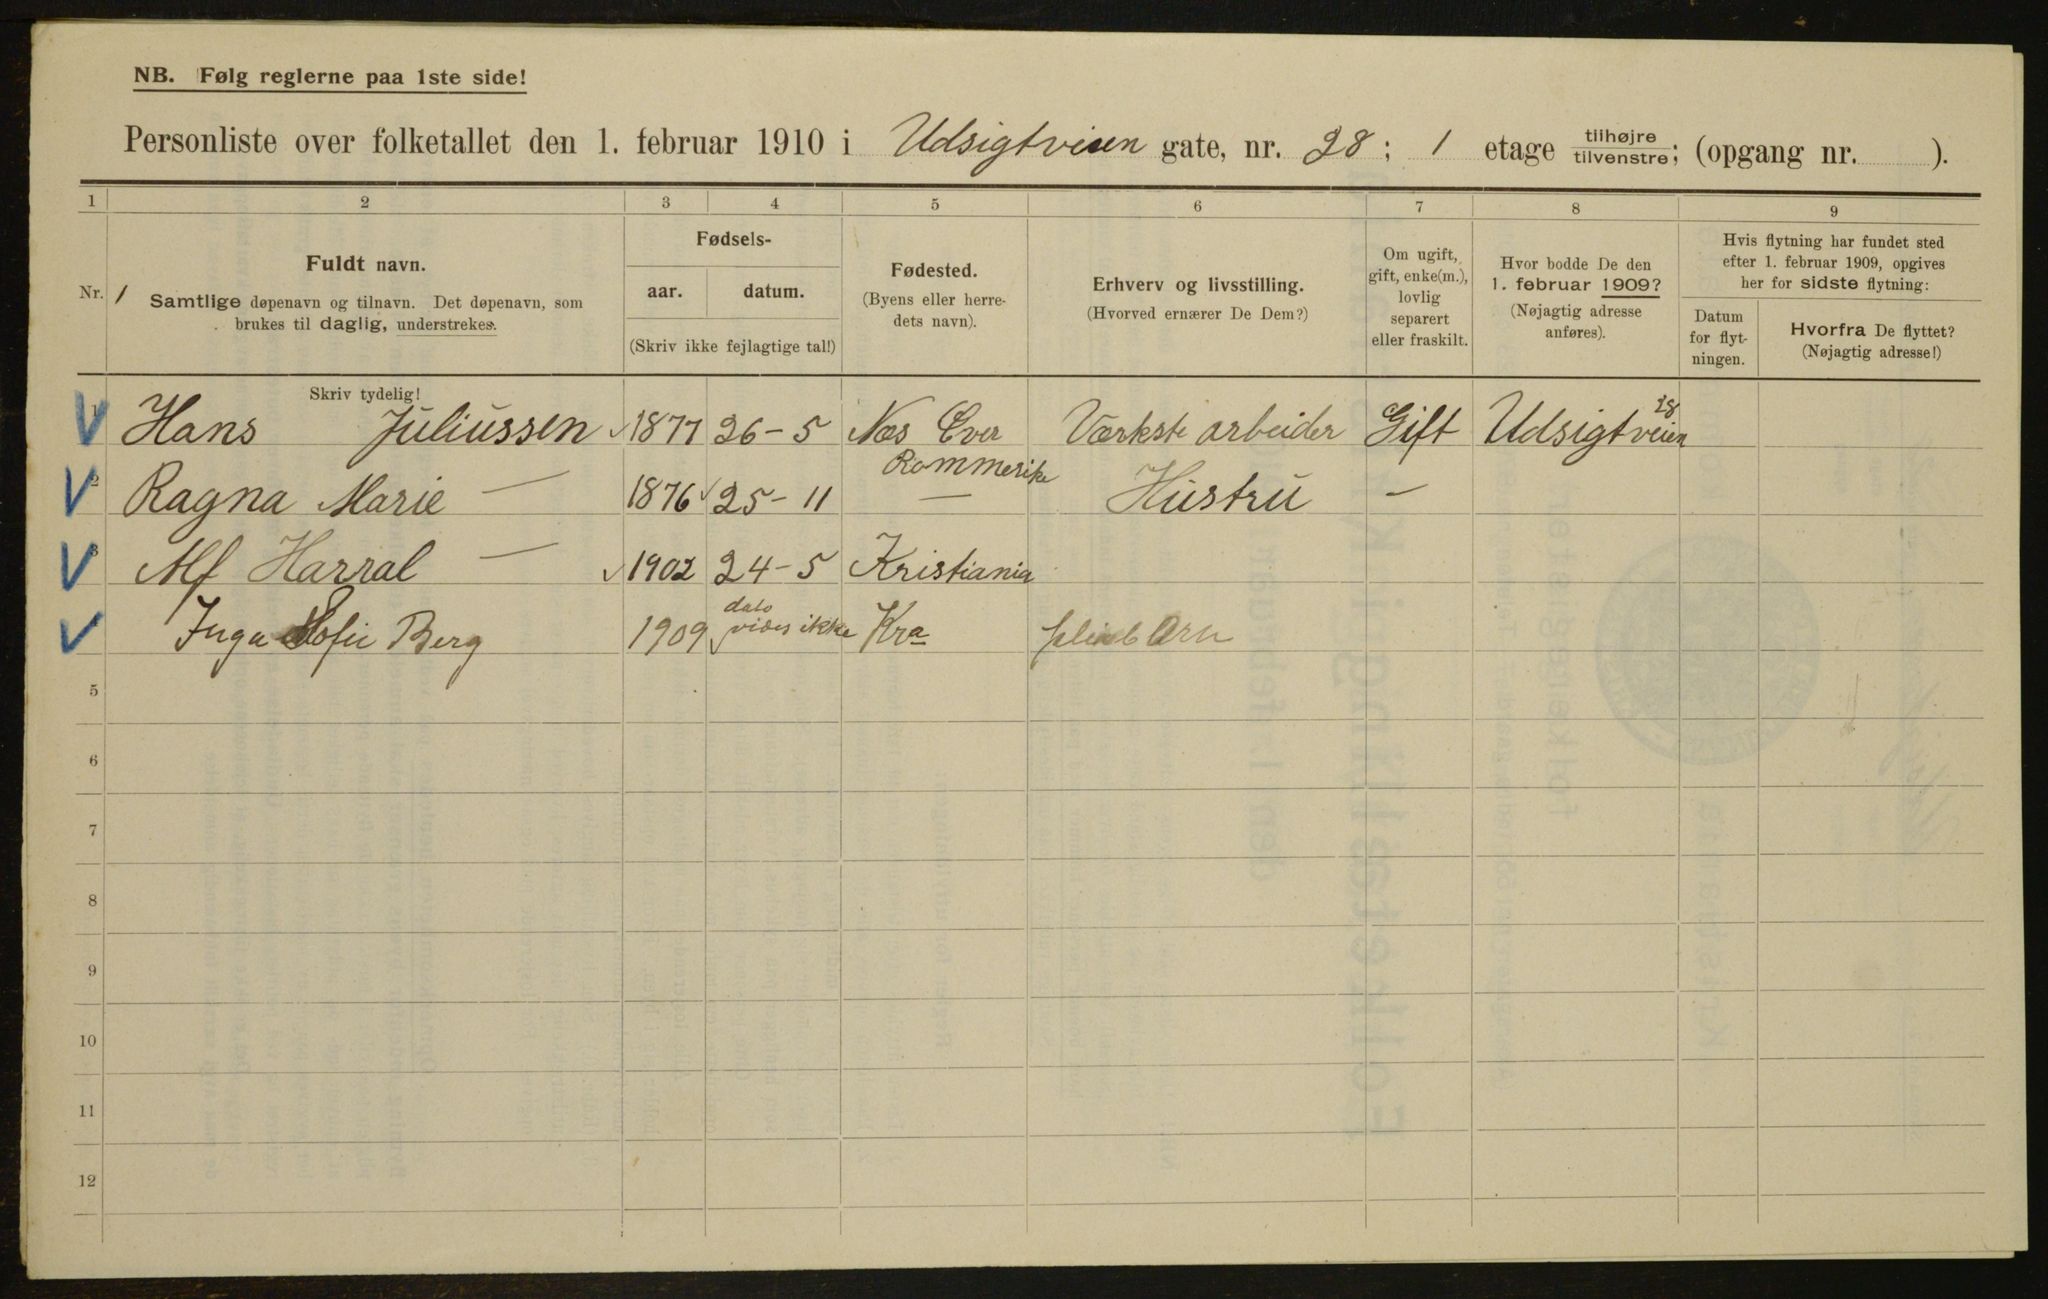 NB. Følg reglerne paa 1ste side!
Personliste over folketallet den 1. februar 1910 i Udsigtveien gate, nr. 28; 1 etage tilhøjre tilvenstre; (opgang nr. ).
1 2 3 4 5 6 7 8 9
Nr. 1
Fuldt navn.
Samtlige døpenavn og tilnavn. Det døpenavn, som
brukes til daglig, understrekes.
Skriv tydelig!
Fødsels-
aar. datum.
(Skriv ikke fejlagtige tal!)
Fødested.
(Byens eller herre-
dets navn).
Erhverv og livsstilling.
(Hvorved ernærer De Dem?)
Om ugift,
gift, enke(m.),
lovlig
separert
eller fraskilt.
Hvor bodde De den
1. februar 1909?
(Nøjagtig adresse
anføres).
Hvis flytning har fundet sted
efter 1. februar 1909, opgives
her for sidste flytning:
Datum
for flyt-
ningen.
Hvorfra De flyttet?
(Nøjagtig adresse!)
1 Hans Juliussen 1877 26-5 Næs Øvr Rommerike Værkste arbeider Gift Udsigtveien 28
2 Ragna Marie — 1876 25-11 — Hustru —
3 Alf Harral — 1902 24-5 Kristiania
Inga Sofie Berg 1909 dato vides ikke Kra pleiebarn
5
6
7
8
9
10
11
12